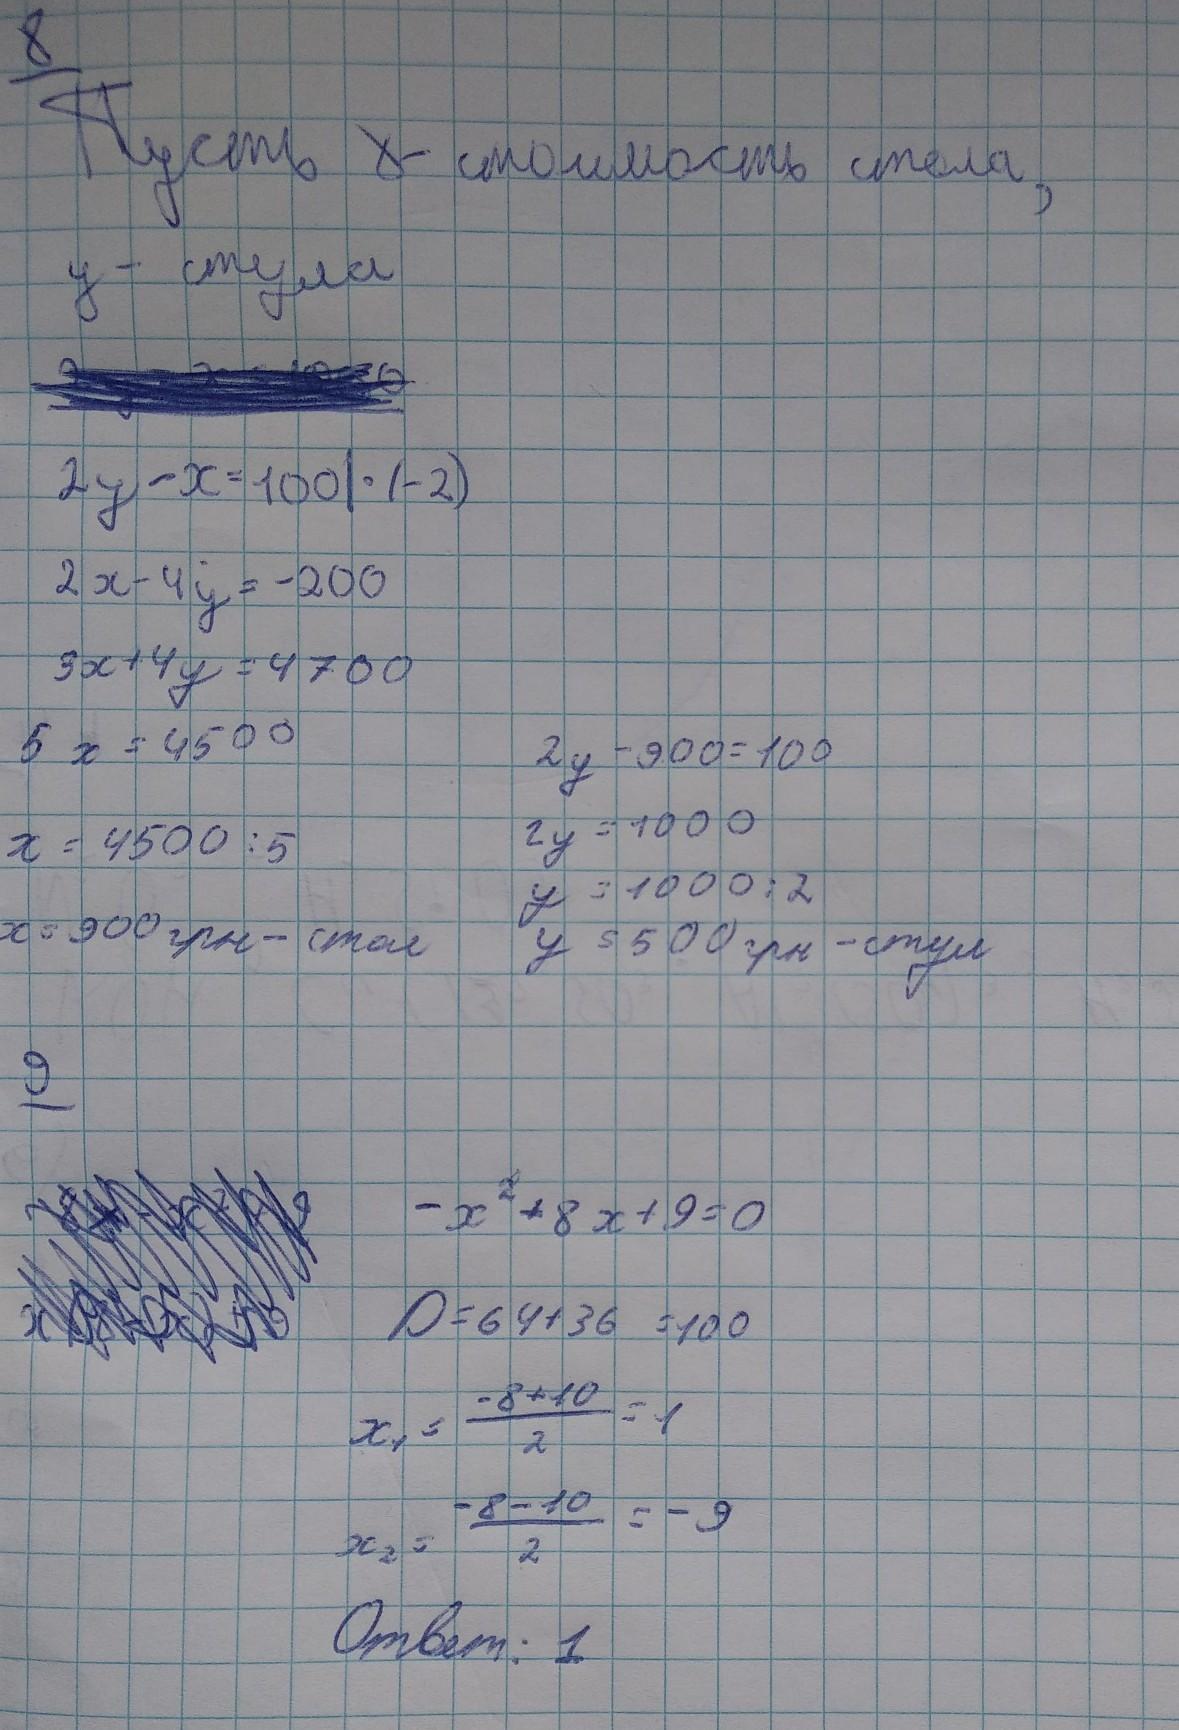 8
Пусть x - стоимость стола,
y - стула
2y - x = 100 | · (-2)
2x - 4y = -200
3x + 4y = 4700
5x = 4500
x = 4500 : 5
x = 900 грн - стол
2y - 900 = 100
2y = 1000
y = 1000 : 2
y = 500 грн - стул
9
-x² + 8x + 9 = 0
D = 64 + 36 = 100
x₁ = (-8+10)/2 = 1
x₂ = (-8-10)/2 = -9
Ответ: 1